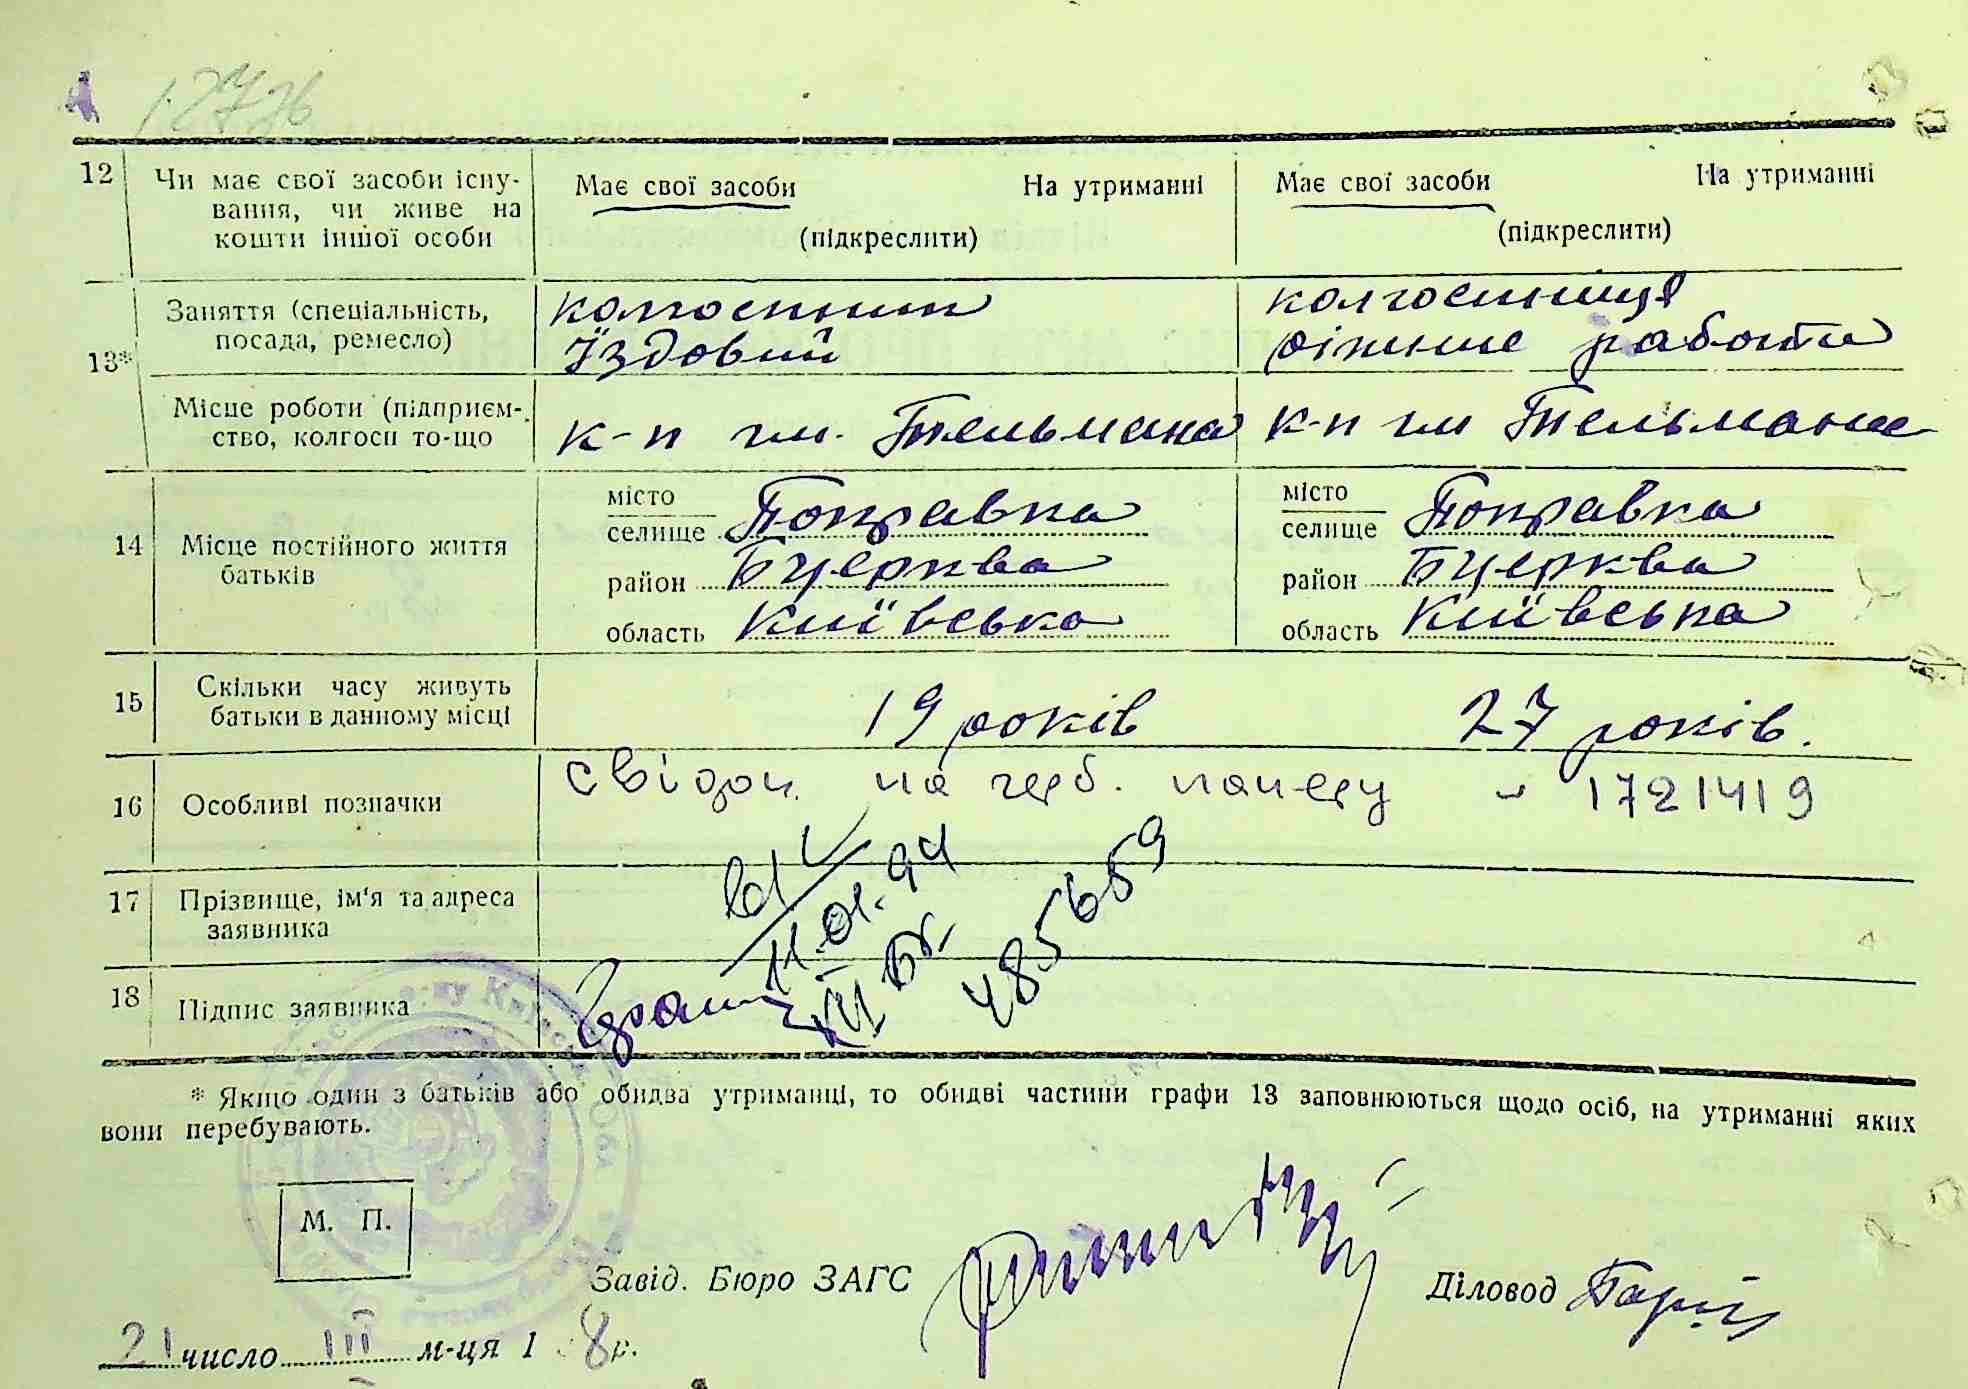 12 Чи має свої засоби існу- Має свої засоби На утриманні Має свої засоби На утриманні
вання, чи живе на
кошти іншої особи (підкреслити) (підкреслити)
13* Заняття (спеціальність, колгоспник колгоспниця
посада, ремесло) Їздовий різние работи
Місце роботи (підприєм- к-п ім. Тельмана к-п ім Тельмана
ство, колгосп то-що
14 Місце постійного життя місто Поправка місто Поправка
батьків селище селище
район Бцерква район Бцерква
область Київська область Київська
15 Скільки часу живуть 19 років 27 років.
батьки в данному місці
16 Особливі позначки свідоц. на герб. паперу 1721419
17 Прізвище, ім'я та адреса
заявника
11.01.94
4856659
18 Підпис заявника
* Якщо один з батьків або обидва утриманці, то обидві частини графи 13 заповнюються щодо осіб, на утриманні яких
вони перебувають.
М. П.
Завід. Бюро ЗАГС Діловод
21 число III м-ця 1 8 р.